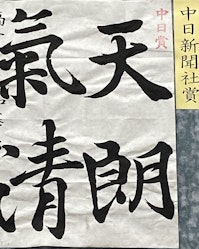 中日新聞社賞
中日賞
天朗
氣清